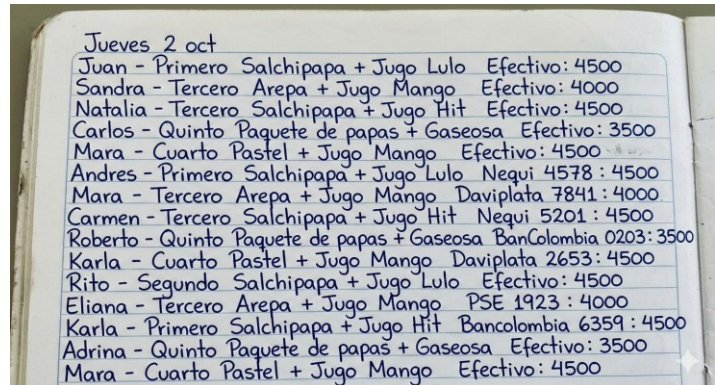 Jueves 2 oct
Juan - Primero Salchipapa + Jugo Lulo Efectivo: 4500
Sandra - Tercero Arepa + Jugo Mango Efectivo: 4000
Natalia - Tercero Salchipapa + Jugo Hit Efectivo: 4500
Carlos - Quinto Paquete de papas + Gaseosa Efectivo: 3500
Mara - Cuarto Pastel + Jugo Mango Efectivo: 4500
Andres - Primero Salchipapa + Jugo Lulo Nequi 4578 : 4500
Mara - Tercero Arepa + Jugo Mango Daviplata 7841 : 4000
Carmen - Tercero Salchipapa + Jugo Hit Nequi 5201 : 4500
Roberto - Quinto Paquete de papas + Gaseosa BanColombia 0203: 3500
Karla - Cuarto Pastel + Jugo Mango Daviplata 2653: 4500
Rito - Segundo Salchipapa + Jugo Lulo Efectivo: 4500
Eliana - Tercero Arepa + Jugo Mango PSE 1923 : 4000
Karla - Primero Salchipapa + Jugo Hit Bancolombia 6359 : 4500
Adrina - Quinto Paquete de papas + Gaseosa Efectivo: 3500
Mara - Cuarto Pastel + Jugo Mango Efectivo: 4500